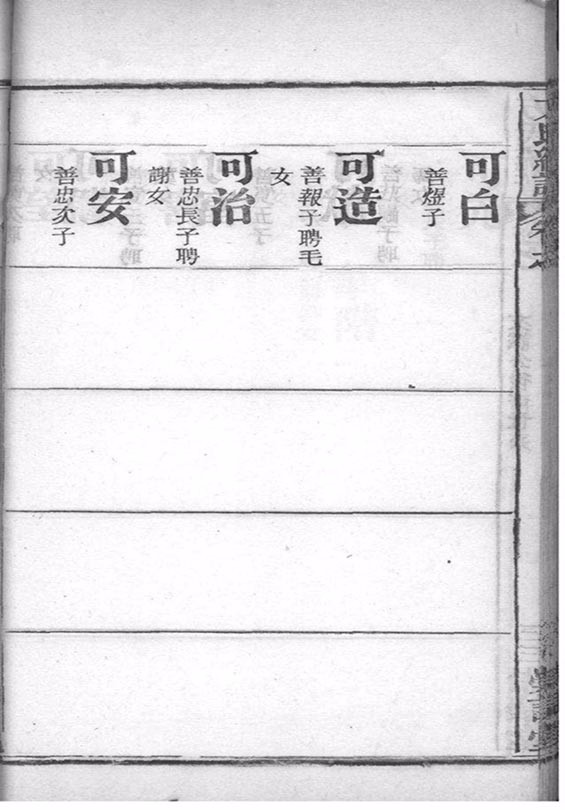 可白
善燈子
可造
善報子聘毛
女
可治
善忠長子聘
謝女
可安
善忠次子